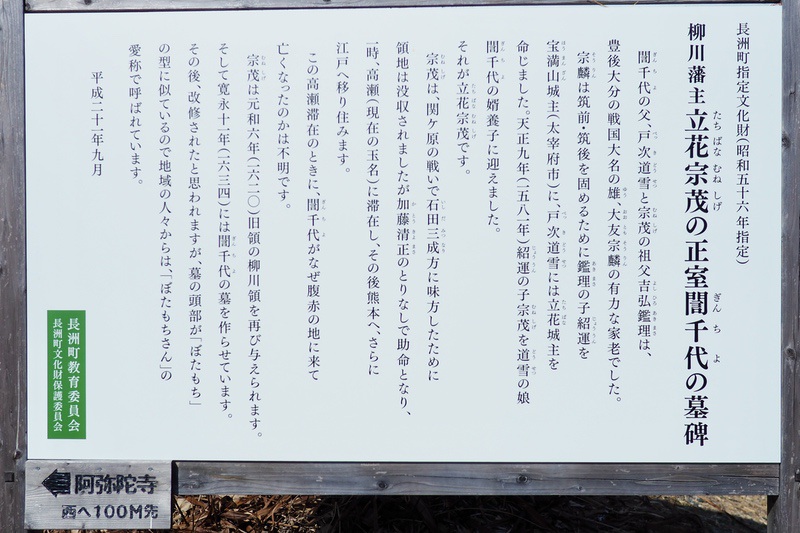 長洲町指定文化財(昭和五十六年指定)
柳川藩主立花宗茂の正室誾千代の墓碑
誾千代の父、戸次道雪と宗茂の祖父吉弘鑑理は、
豊後大分の戦国大名の雄、大友宗麟の有力な家老でした。
宗麟は筑前・筑後を固めるために鑑理の子紹運を
宝満山城主(太宰府市)に、戸次道雪には立花城主を
命じました。天正九年(一五八一年)紹運の子宗茂を道雪の娘
誾千代の婿養子に迎えました。
それが立花宗茂です。
宗茂は、関ケ原の戦いで石田三成方に味方したために
領地は没収されましたが加藤清正のとりなしで助命となり、
一時、高瀬(現在の玉名)に滞在し、その後熊本へ、さらに
江戸へ移り住みます。
この高瀬滞在のときに、誾千代がなぜ腹赤の地に来て
亡くなったのかは不明です。
宗茂は元和六年(一六二〇)旧領の柳川領を再び与えられます。
そして寛永十一年(一六三四)には誾千代の墓を作らせています。
その後、改修されたと思われますが、墓の頭部が「ぼたもち」
の型に似ているので地域の人々からは、「ぼたもちさん」の
愛称で呼ばれています。
平成二十一年九月
長洲町教育委員会
長洲町文化財保護委員会
阿弥陀寺
西へ100M先